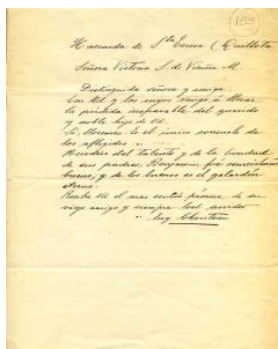 Hacienda de Sta Teresa (Quillota
Señora Victoria S. de Vicuña M.
Distinguida señora y amiga:
Con Ud y los suyos vengo á llorar
la pérdida irreparable del querido
y noble hijo de Ud.
es el único consuelo de
los aflijidos
Heredero del talento y de la bondad
de sus padres, Benjamin fué
bueno, y de los buenos es el galardón
eterno.
Reciba Ud el mas sentido pésame de su
viejo amigo y siempre leal servidor
Eug Chouteau